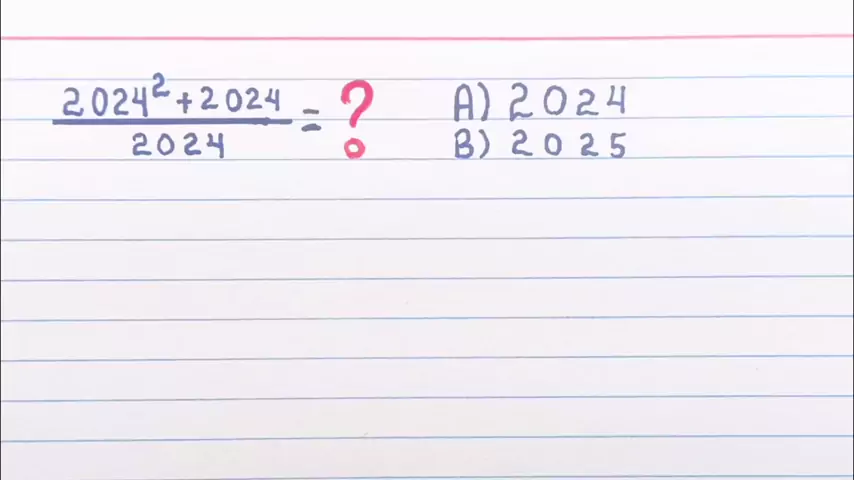 2024² + 2024 / 2024 = ? A) 2024
B) 2025